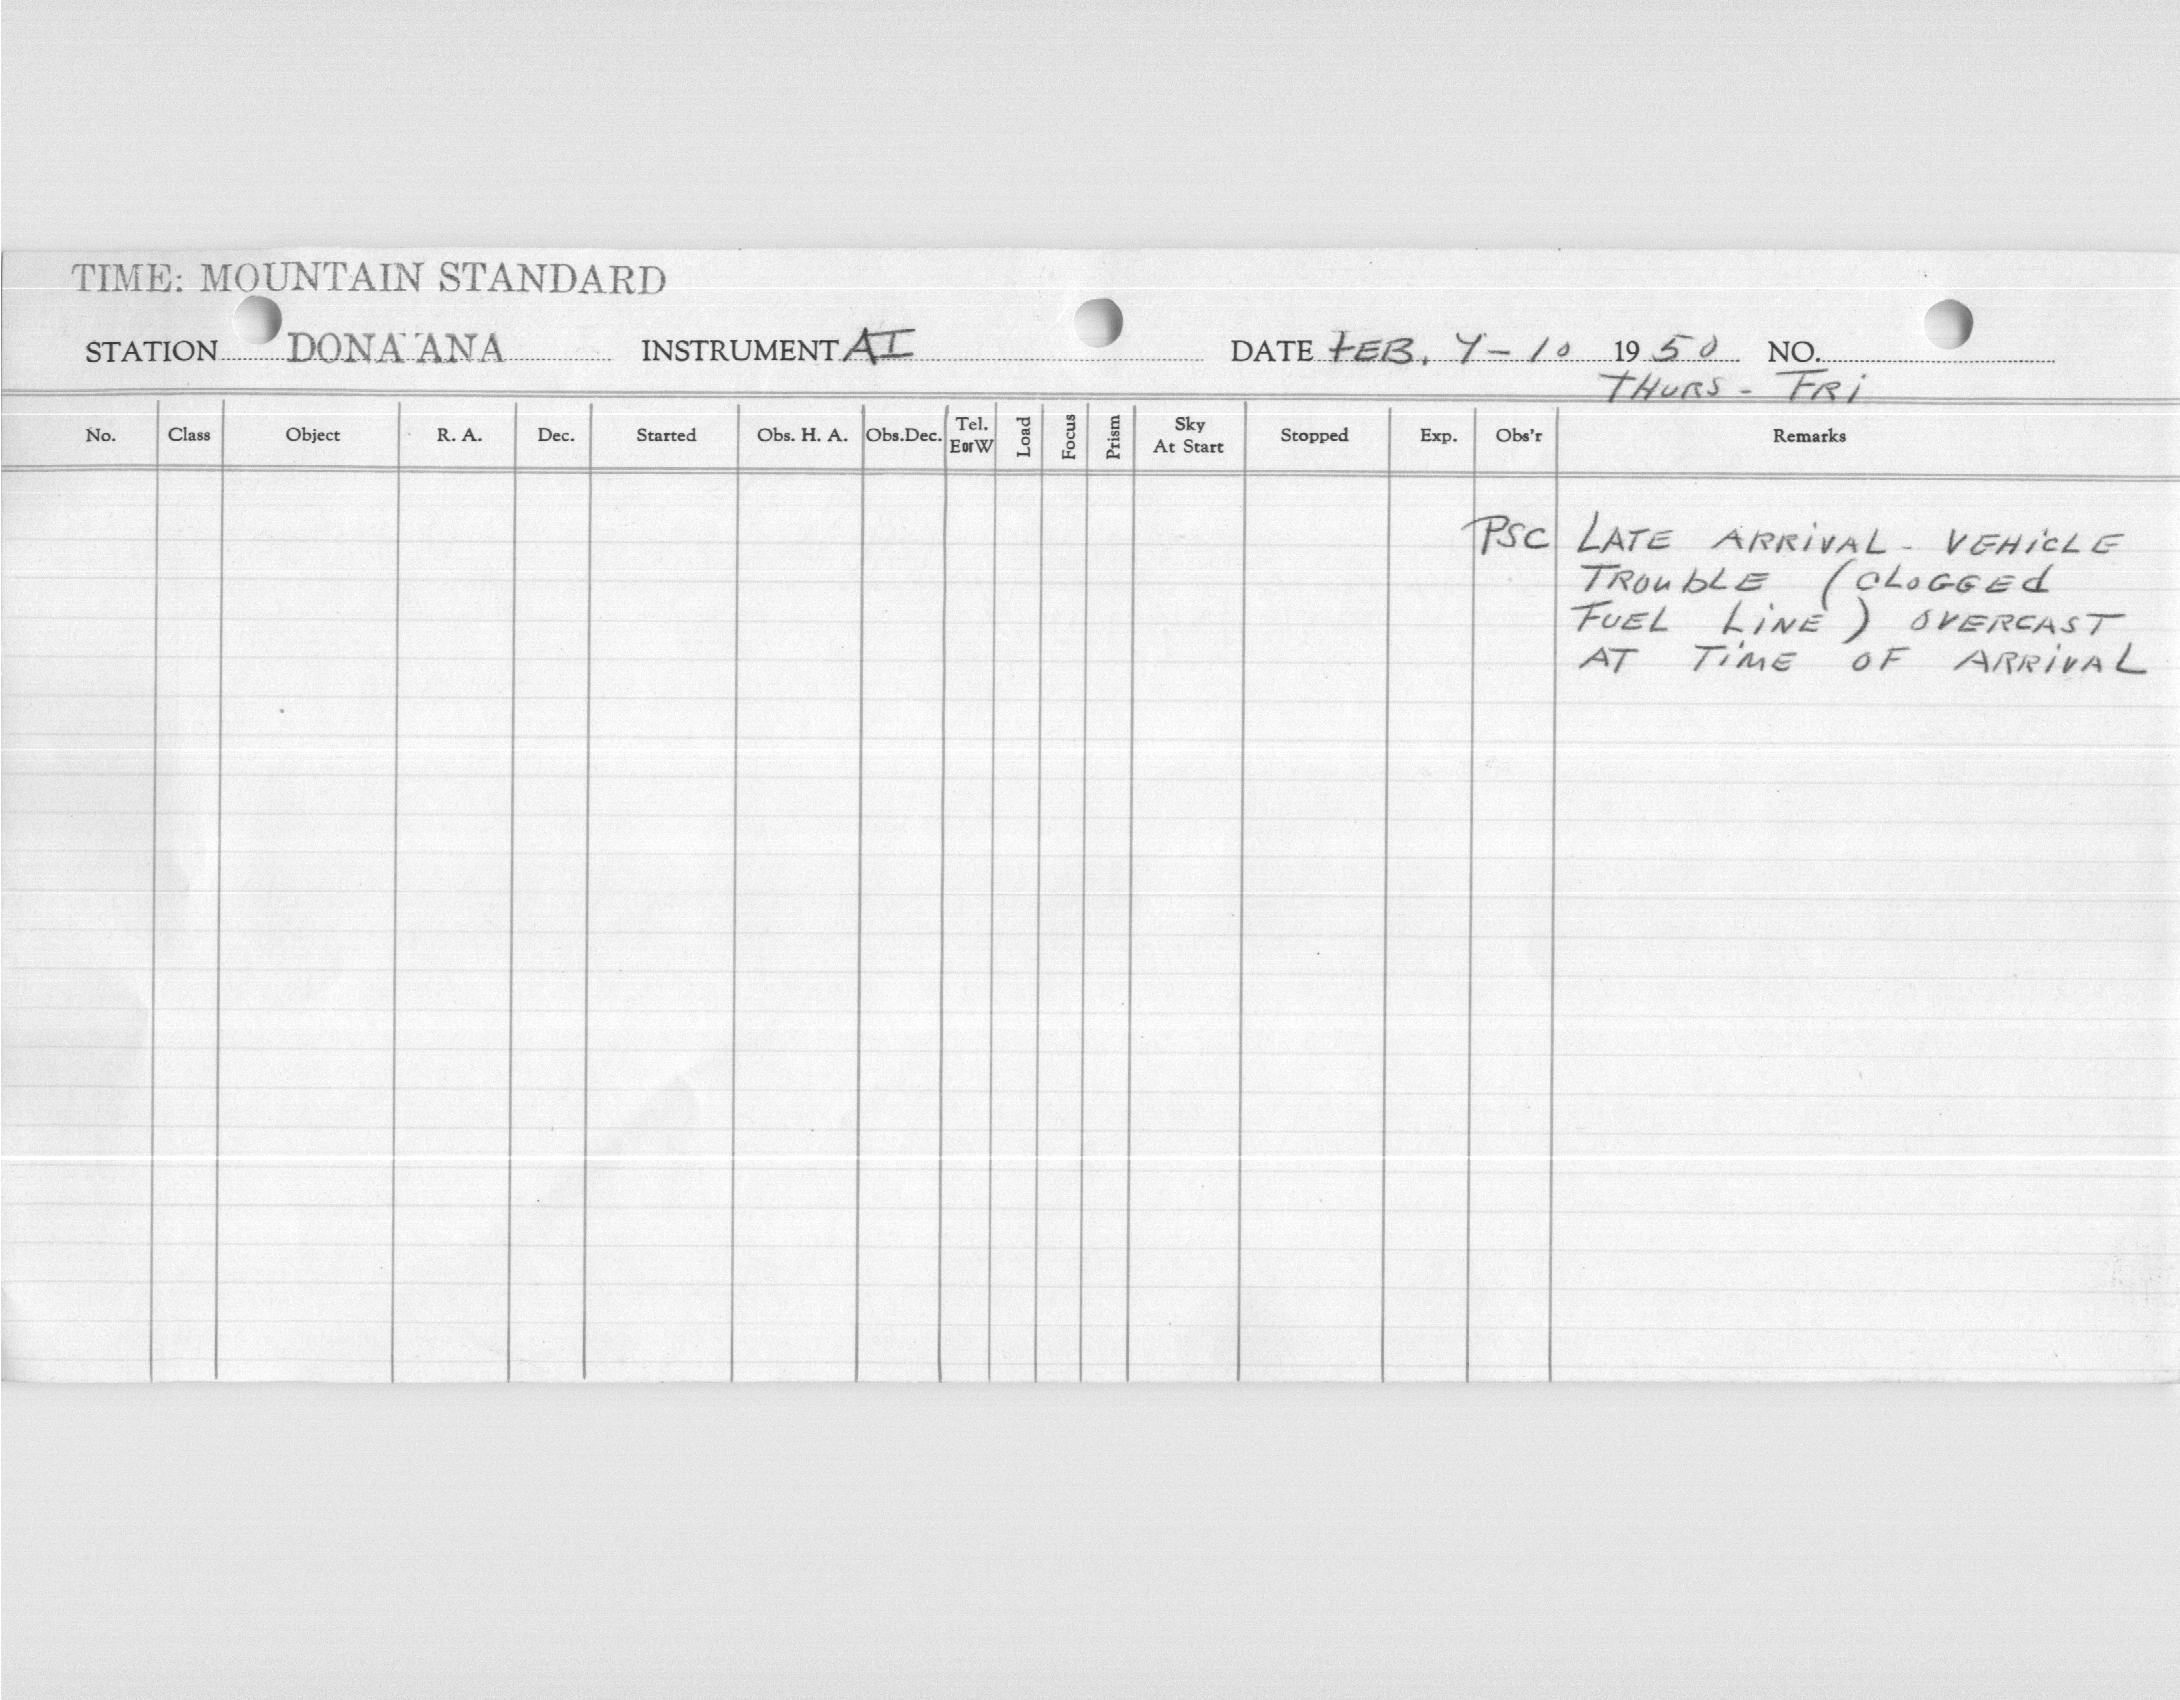 TIME: MOUNTAIN STANDARD
STATION DONA ANA INSTRUMENT AI DATE FEB. 9-10 1950 NO.
THURS - FRI
No. Class Object R. A. Dec. Started Obs. H. A. Obs.Dec. Tel. E or W Load Focus Prism Sky At Start Stopped Exp. Obs'r Remarks
PSC LATE ARRIVAL - VEHICLE
TROUBLE (CLOGGED
FUEL LINE) OVERCAST
AT TIME OF ARRIVAL